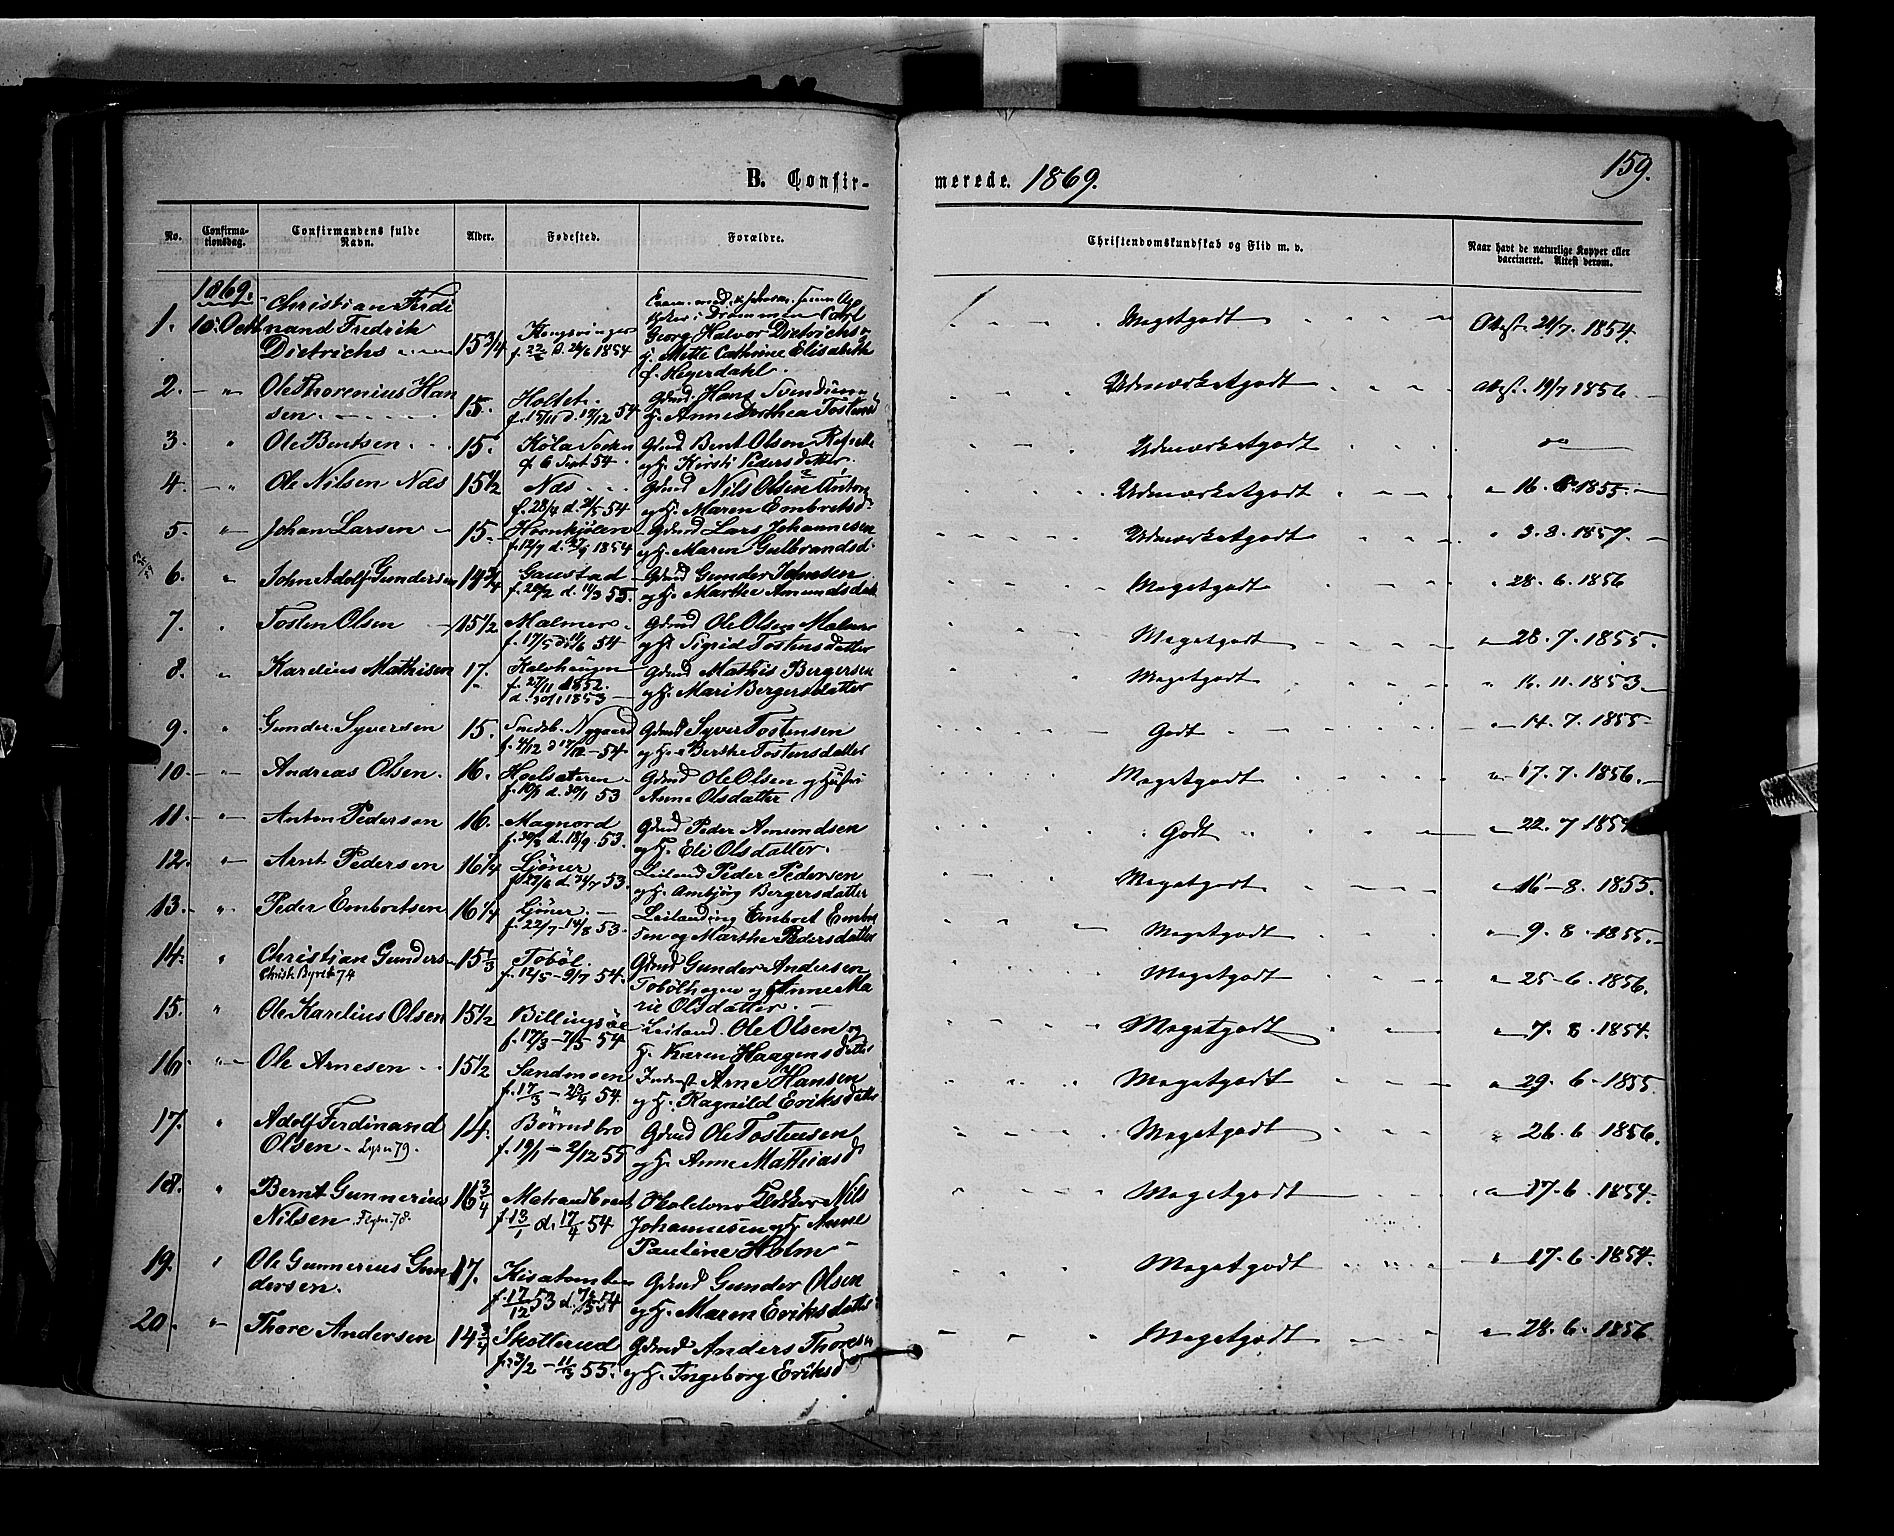 159.
B. Confir- merede. 1869.
No. Confirma-tionsdag. Confirmandens fulde Navn. Alder. Fødested. Forældre. Christendomskundskab og Flid m. v. Naar havt de naturlige Kopper eller vaccineret. Attest derom.
1869.
Christian Ferdi
1. 10. Octb nand Fredrik
Dietrichs 15 3/4 Kongsvinger 1854
Georg Halvor Dietrichs og
H. Mette Cathrine Elisabeth
f. Heyerdahl.
Megetgodt Attest 21/7. 1854.
2. - " Ole Thorenius Han
sen. 15. Holdet.
f. 15/11 d. 17/12 54
Gdmd. Hans Svendsen
H. Anne Dorthea Tostensd
Udmærketgodt Attest. 19/7 1856
3. " Ole Berntsen 15. Køla Sogn
f. 6 Sept 54.
Gdmd Bent Olsen
og H. Kirsti Pedersdatter.
Udmærketgodt
4. - " Ole Nilsen Næs 15 1/2 Næs
f. 28/4 d. 21/5 54
Gdmd Nils Olsen
og H. Maren Embretsd
Udmærketgodt " 16. 6. 1855.
5. " Johan Larsen 15. Hornkjølen
f. 12/9 d. 27/9 1854
Gdmd Lars Johannesen
og H. Maren Gulbrandsd.
Udmærketgodt " 3. 8. 1857.
6. " John Adolf Gundersen 14 3/4 Gaustad
f. 20/2 d. 11/3 55.
Gdmd Gunder Johnsen
og H. Marthe Amundsdat
Megetgodt " 28. 6. 1856
7. " Tosten Olsen 15 1/2 Malmer
f. 17/5 d. 11/6 54
Gdmd Ole Olsen Malmer
og H. Sigrid Tostensdatter
Megetgodt " 28. 7. 1855.
8. " Karelius Mathisen 17. Kalvhaugen
f. 27/11 1852.
d. 30/1 1853
Gdmd Mathis Bergersen
og H. Mari Bergersdatter
Megetgodt " 16. 11. 1853
9. " Gunder Syversen 15. Nygaard
f. 2/12 d 17/12 - 54
Gdmd Syver Tostensen
og H. Berthe Tostensdatter
Godt " 14. 7. 1855
10. - " - Andreas Olsen. 16. Hoelsæteren
f. 10/1 d. 30/1 53
Gdmd Ole Olsen og Hustru
Anne Olsdatter
Megetgodt " 17. 7. 1856.
11. - " - Anton Pedersen 16. Magnord
f. 30/8 d. 18/9 53.
Gdmd Peder Amundsen
og H. Eli Olsdatter.
Godt " 22. 7 185
12. " Arnt Pedersen 16 1/4 Ljøner
53.
Leilænd Peder Pedersen
og H. Ambjøg Bergersdatter
Megetgodt " 16 - 8. 1855.
13. - " Peder Embretsen 16 1/4 Ljøner.
f. 22/7 - 14/8 53.
Leilænding Embret Embret
sen og Marthe Pedersdatter
Megetgodt " 9. 8. 1855.
14. " Christian Gunders 15 1/3 Tobøl.
f. 12/5 - 9/7 54.
Gdmd Gunder Andersen
og H. Anne Ma
rie Olsdatter.
Megetgodt " 25 - 6. 1856.
15. " Ole Karelius Olsen 15 1/2
f. 17/3 - 7/5 54
Leilænd. Ole Olsen og
H. Karen Haagensdatter
Megetgodt " 7. 8. 1854.
16. " Ole Arnesen 15 1/2 Sandmoen
f. 17/3 - 23/4 54.
Inderst Arne Hansen
og H. Ragnild Eriksdatter
Megetgodt " 29. 6 - 1855
17. " Adolf Ferdinand
Olsen 14. Børrud bro
f. 19/1 - 2/12 55
Gdmd Ole Tostensen
og H. Anne Mathiasd
Megetgodt " 26. 6 - 1856.
18. " Bernt Gunnerius
Nilsen 16 3/4
f. 13/1 d. 17/4 54
Nils
Johannesen og H. Anne
Pauline Holm
Megetgodt " 17. 6. 1854.
19. " Ole Gunnerius Gun
dersen. 17.
Gdmd Gunder Olsen
og H. Maren Eriksdatter
Megetgodt " 17. 6. 1854.
20. " Thore Andersen 14 3/4 Skotterud
55.
Gdmd Anders Thoresen
og H. Ingeborg Eriksd
Megetgodt " 28. 6. 1856